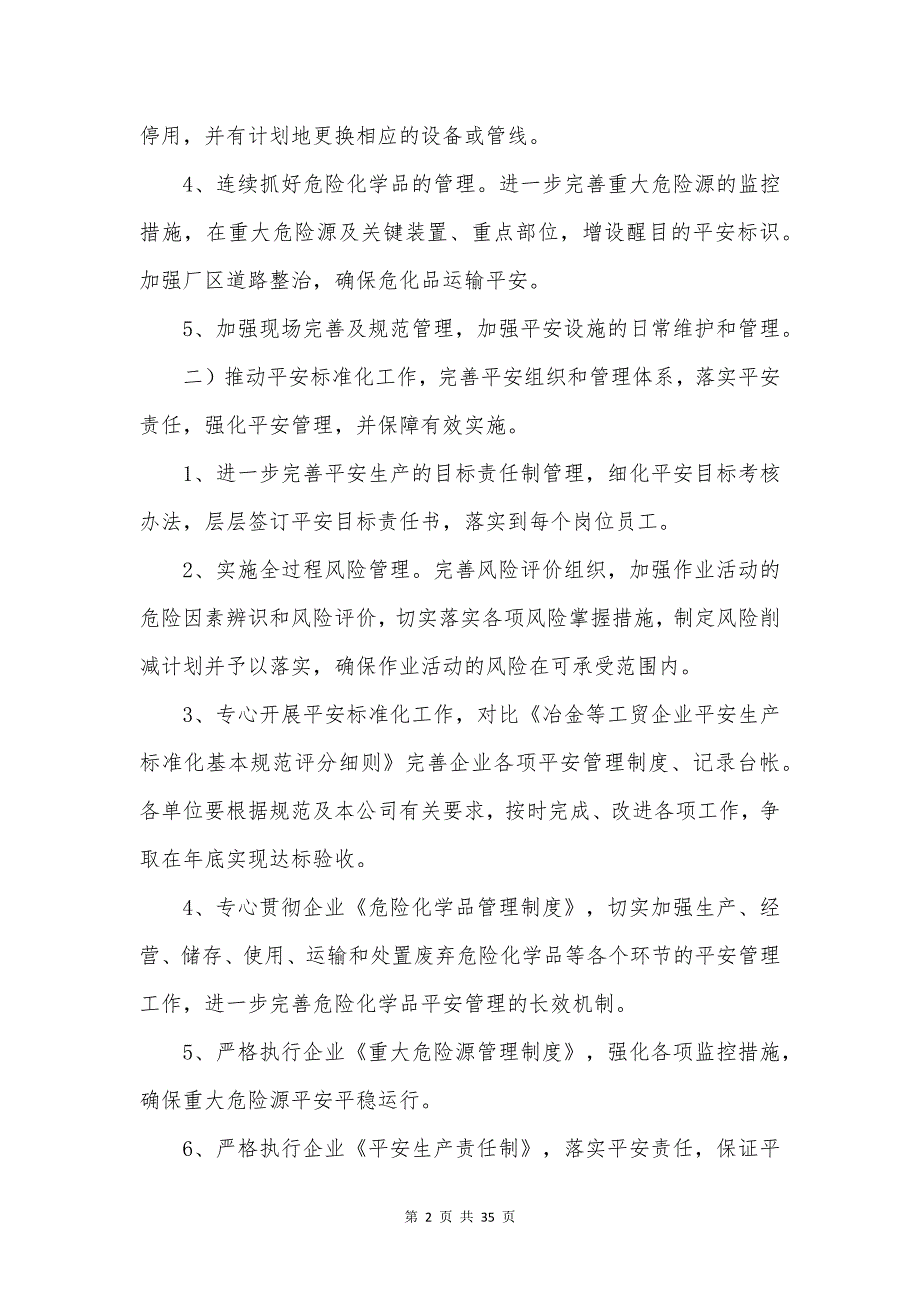 停用，并有计划地更换相应的设备或管线。
4、连续抓好危险化学品的管理。进一步完善重大危险源的监控
措施，在重大危险源及关键装置、重点部位，增设醒目的平安标识。
加强厂区道路整治，确保危化品运输平安。
5、加强现场完善及规范管理，加强平安设施的日常维护和管理。
二）推动平安标准化工作，完善平安组织和管理体系，落实平安
责任，强化平安管理，并保障有效实施。
1、进一步完善平安生产的目标责任制管理，细化平安目标考核
办法，层层签订平安目标责任书，落实到每个岗位员工。
2、实施全过程风险管理。完善风险评价组织，加强作业活动的
危险因素辨识和风险评价，切实落实各项风险掌握措施，制定风险削
减计划并予以落实，确保作业活动的风险在可承受范围内。
3、专心开展平安标准化工作，对比《冶金等工贸企业平安生产
标准化基本规范评分细则》完善企业各项平安管理制度、记录台帐。
各单位要根据规范及本公司有关要求，按时完成、改进各项工作，争
取在年底实现达标验收。
4、专心贯彻企业《危险化学品管理制度》，切实加强生产、经
营、储存、使用、运输和处置废弃危险化学品等各个环节的平安管理
工作，进一步完善危险化学品平安管理的长效机制。
5、严格执行企业《重大危险源管理制度》，强化各项监控措施，
确保重大危险源平安平稳运行。
6、严格执行企业《平安生产责任制》，落实平安责任，保证平
第 2 页 共 35 页